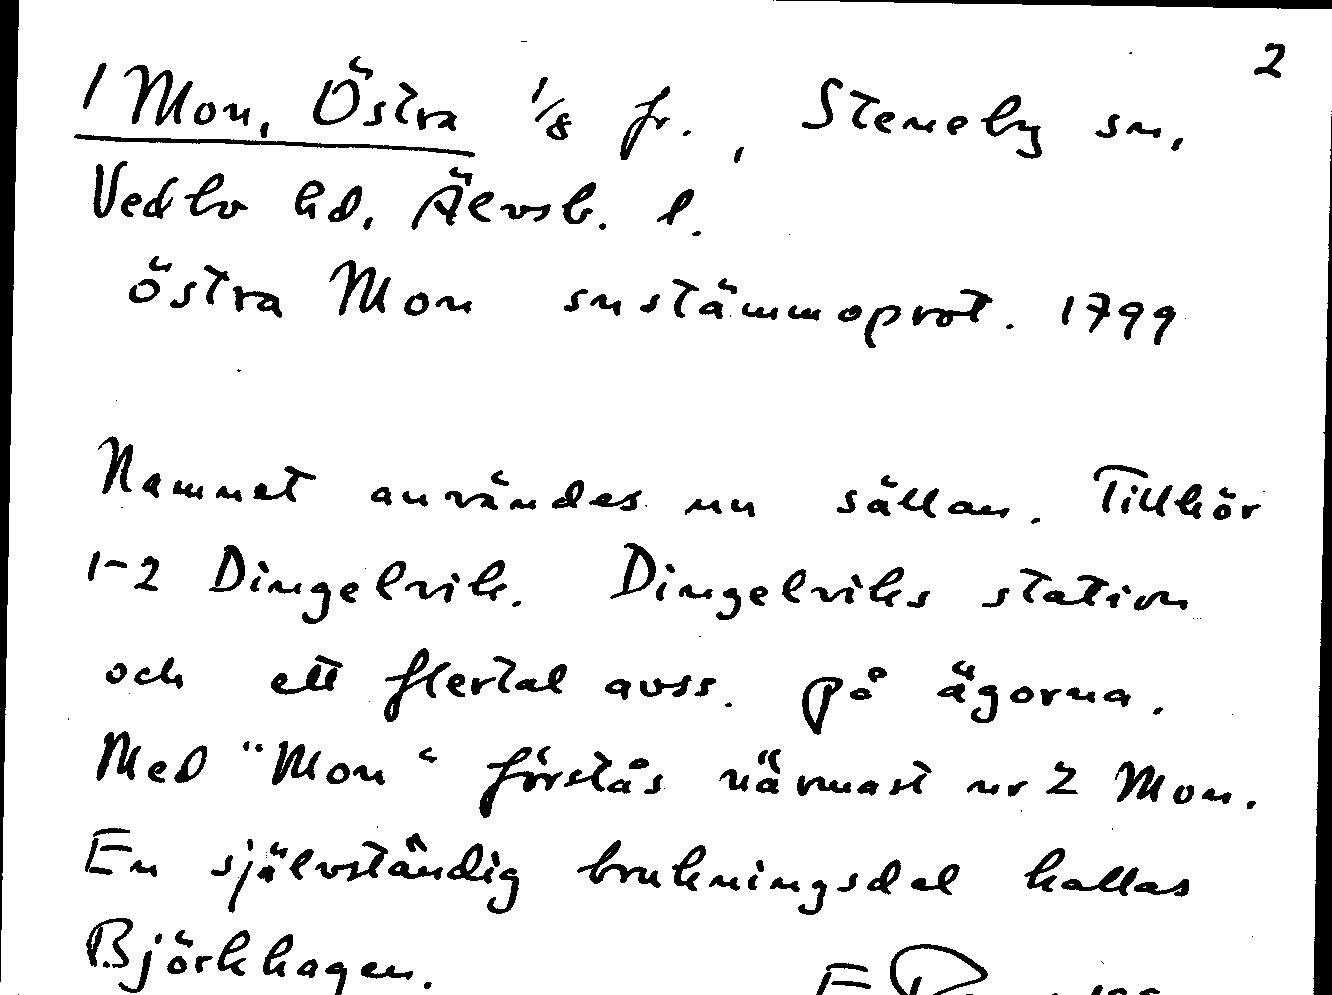 2
1 Mon, Östra 1/8 fr., Steneby sn,
Vedbo hd, Älvsb. l.
östra Mon snstämmoprot. 1799
Namnet användes nu sällan. Tillhör
1-2 Dingelvik. Dingelviks station
och ett flertal avss. på ägorna.
Med "Mon" förstås närmast nr 2 Mon.
En självständig brukningsdel kallas
Björkhagen.